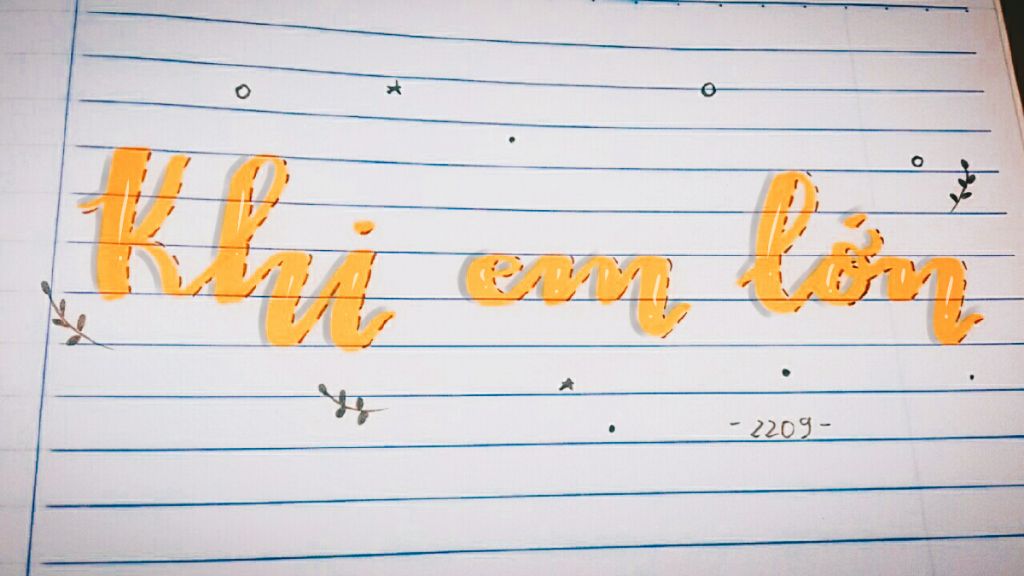 Khi em lớn
-2209-